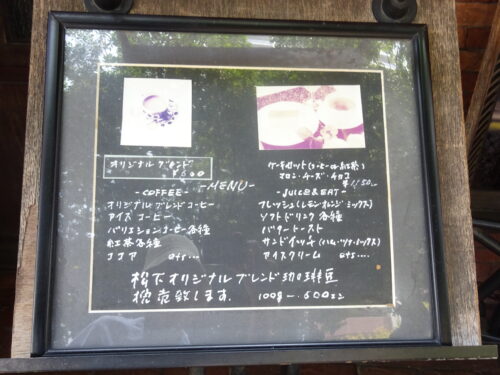 オリジナルブレンド
¥600
ケーキセット(コーヒーor紅茶)
マロン・チーズ・チョコ
¥1,150
-MENU-
-COFFEE-
オリジナルブレンドコーヒー
アイスコーヒー
バリエーションコーヒー各種
紅茶各種
ココア etc...
-JUICE&EAT-
フレッシュ(レモン オレンジ ミックス)
ソフトドリンク各種
バタートースト
サンドイッチ(ハム・ツナ・ミックス)
アイスクリーム etc...
松下オリジナルブレンド珈琲豆
挽売致します. 100g-600エン